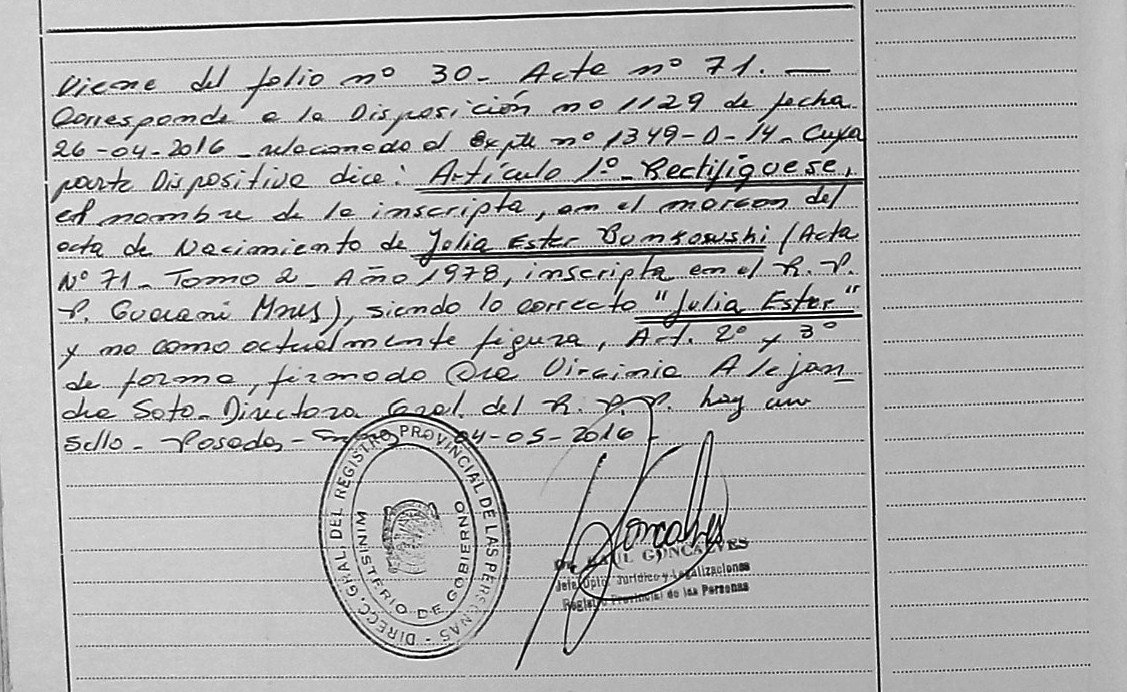 Viene del folio nº 30 - Acta nº 71. —
Corresponde a la Disposición nº 1129 de fecha
26-04-2016 - relacionado al Expte nº 1349-D-14 - Cuya
parte Dispositiva dice: Artículo 1º - Rectifiquese,
el nombre de la inscripta, en el margen del
acta de Nacimiento de Jolia Ester Bunkowski (Acta
Nº 71 - Tomo 2 - Año 1978, inscripta en el R. P.
P. Guarani Mnes), siendo lo correcto "Julia Ester"
y no como actualmente figura, Art. 2º y 3º
de forma, firmado Dra Virginia Alejan_
dra Soto - Directora Gral. del R. P. P. hay un
sello - Posadas - 04-05-2016 -
DIRECC. GRAL. DEL REGISTRO PROVINCIAL DE LAS PERSONAS -
MINISTERIO DE GOBIERNO
RAUL GONCALVES
Jefe Dpto. Jurídico y Legalizaciones
Registro Provincial de las Personas